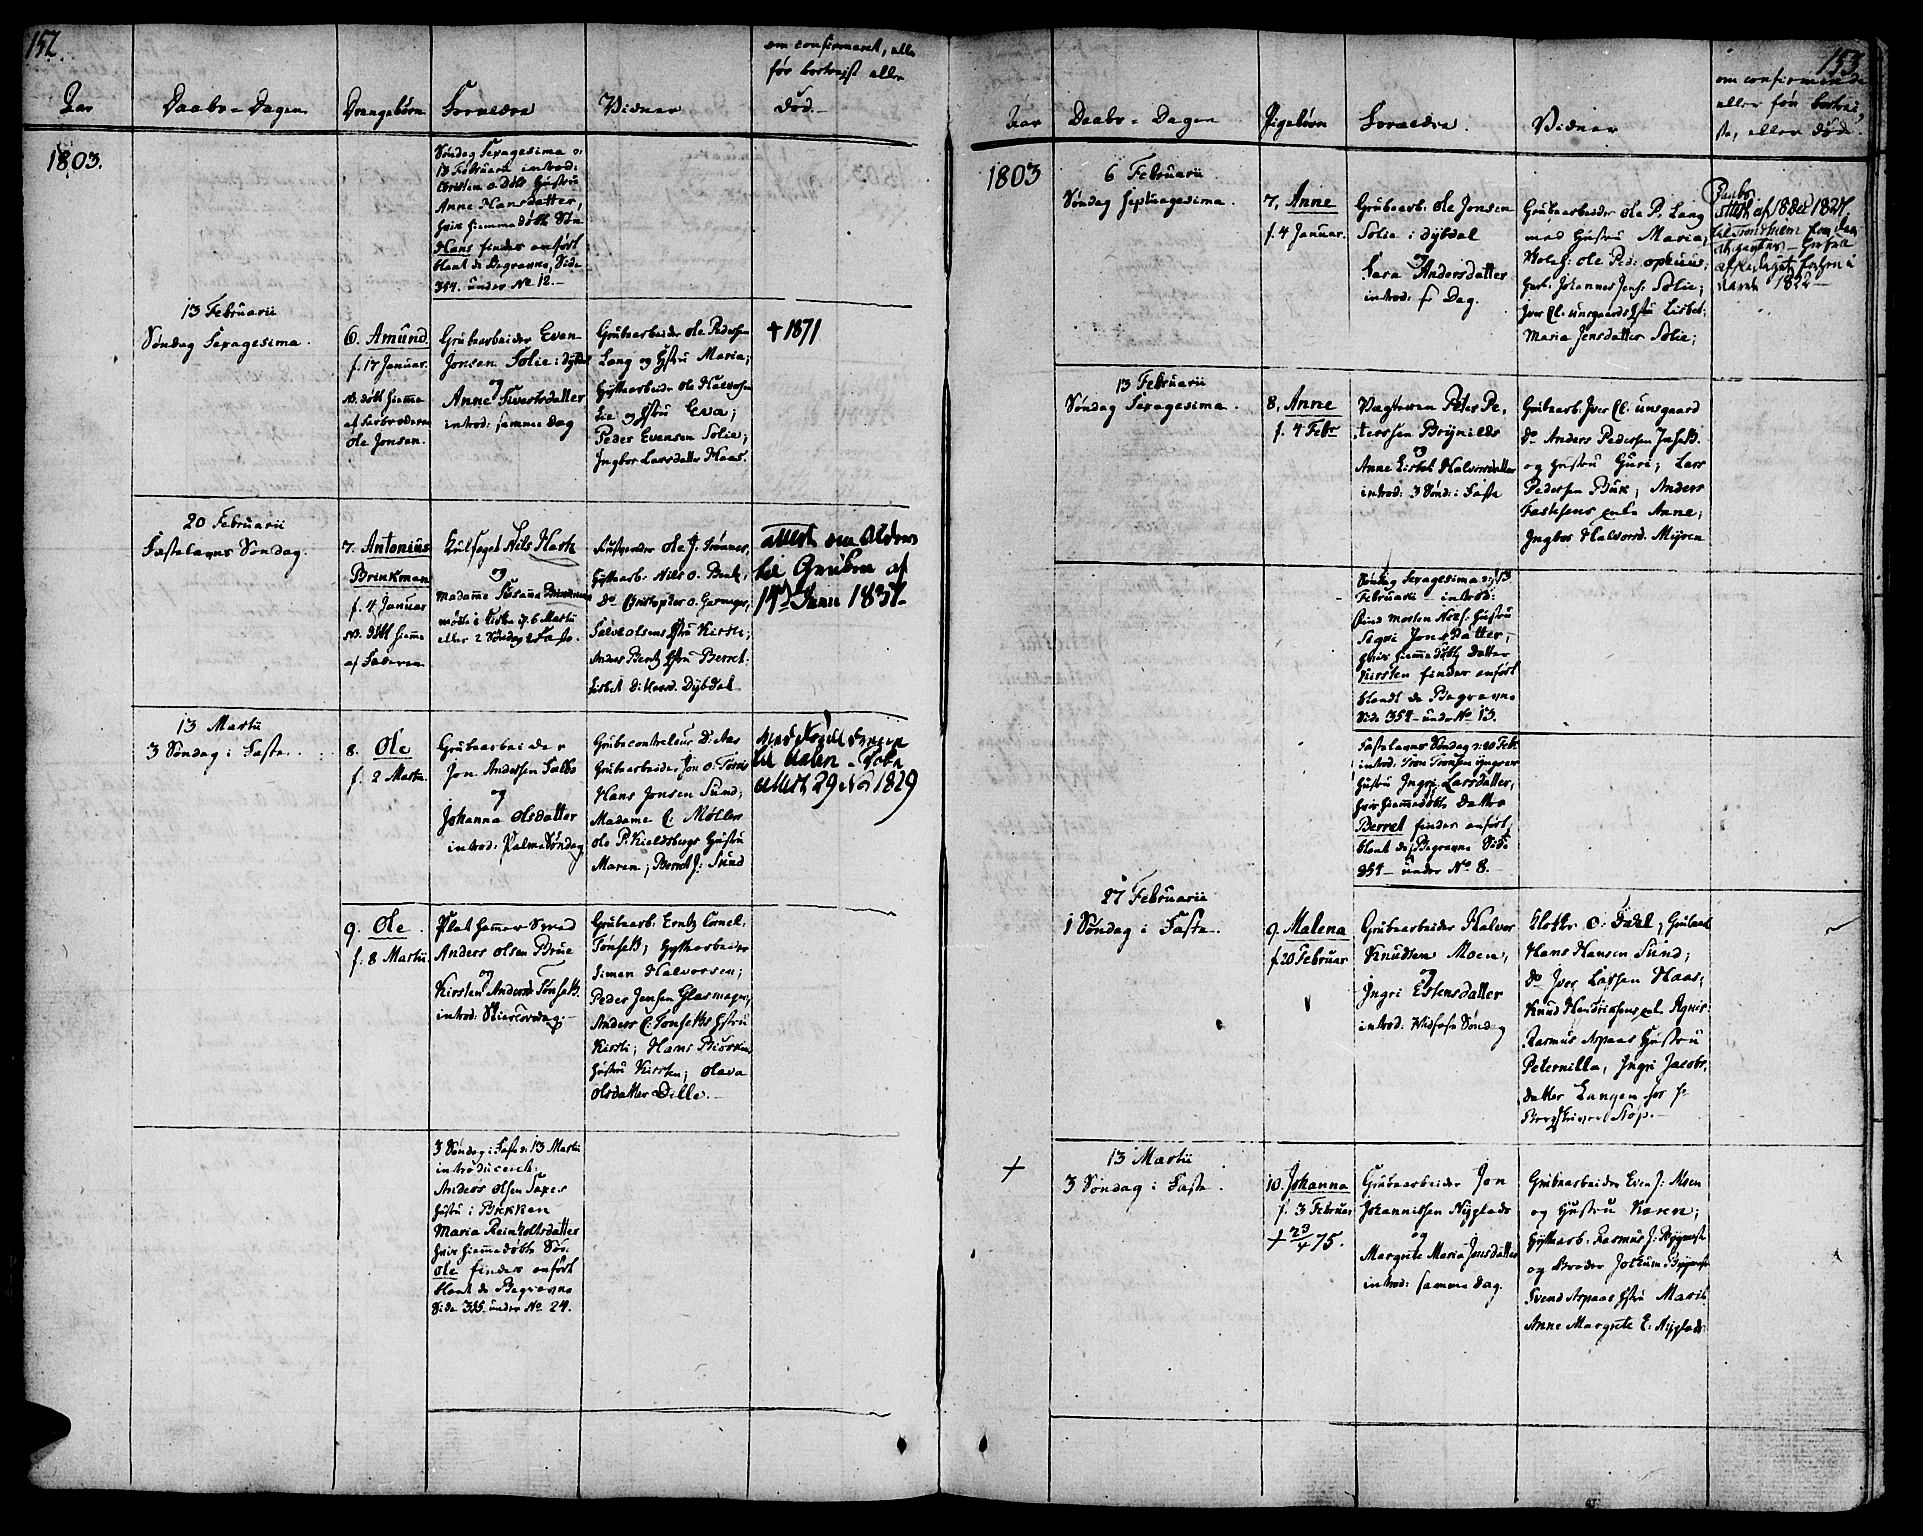 152.
Aar
Daabs-Dagen
Drengebørn
Forældre
Vidner
om confirmeret, eller
før bortrejst eller
død.
1803.
Søndag Sexagesima ɔ:
13 Februarii introd:
Christen o. Døls Hustru
Anne Hansdatter,
hvis hiemmedøbte Søn
Hans findes anført
blant de Begravne, Side
354. under No 12.
13 Februarii
Søndag Sexagesima.
6. Amund
f. 17 Januar.
NB. døbt hiemme
af Farbroderen
Ole Jonsen.
Grubearbeider Even
Jonsen Solie i Dybdal
og
Anne Sivertsdatter
introd: samme Dag
Grubearbeider Ole Pedersen
Lang og Hstru Maria;
Hyttearbeider Ole Halvorsen
Lie og Hstru Eva;
Peder Evensen Solie;
Ingbor Larsdatter Haas.
+ 1871
20 Februarii
Fastelavns Søndag.
7. Antonius
Brinkman
f. 4 Januar
NB. døbt hiemme
af Faderen
Nils Hark
og
Madame Susana Brinkman
mødte i Kirken d. 6 Martii
eller 2 Søndag i Faste.
Ole J. Trønnes,
Hyttearb: Nils O. Bentz,
Do Christopher O.
Hstru Kirsti;
Anders Bentz Hstru Berret.
Lisbet Dybdal
attest om Alderen
til Gruben af
15d Junii 1837
13 Martii
3 Søndag i Faste.
8. Ole
f. 2 Martii.
Grubearbeider
Jon Andersen Salbo
og
Johanna Olsdatter
introd: Palme Søndag
Grubecontroleur D: Aas
Grubearbeider Jon O: Torris
Hans Jonsen Sund;
Madame C. Møllers
Ole P. Kieldsbergs Hustru
Maren; Berret J: Sund
attest 29 No 1829
9. Ole
f. 8 Martii.
Plathammer Smed
Anders Olsen Brue
og
Kirsten Andersd Tønset.
introd: Skiertorsdag.
Grubearb: Erntz Cornel:
Tønset; Hyttearbeider
Simen Halvorsen;
Peder Jensen Glasmager,
Anders C. Tønsets Hstru
Kirsti; Hans
Hustru Kirsten; Olava
Olsdatter Dille.
3 Søndag i Faste ɔ: 13 Martii
introduceret:
Anders Olsen Saxes
Hustru i Bekken
Maria Reinholtsdatter
hvis hiemmedøbte Søn
Ole findes anført
blant de Begravne
Side 355. under No 24.
153
Aar
Daabs-Dagen
Pigebørn
Forældre.
Vidner
om confirmerede
eller før bortrei-
ste, eller døde.
1803
6 Februarii
Søndag Septuagesima.
7, Anne
f. 4 Januar.
Grubearb: Ole Jonsen
Solie i Dybdal
og
Sara Andersdatter
introd: s: Dag.
Grubearbeider Ole P. Lang
med Hustru Maria;
Ole Ped:
Johannes Jens: Solie;
Iver Cl: Unsgaards Hstru Lisbet;
Maria Jensdatter Solie;
Daabs
attest af 18 Dec 1827
til Trondhiem
1822
13 Februarii
Søndag Sexagesima.
8, Anne
f. 4 Febr
Vægteren Peter Pe-
tersen Brynilds
og
Anne Lisbet Halvorsdatter
introd: 3 Sønd: i Faste
Grubearb: Iver Cl. Unsgaard
Do Anders Pedersen
og Hustru Guri; Lars
Pedersen Buk; Anders
Anne;
Ingbor Halvorsd. Myren
Søndag Sexagesima ɔ: 13
Februarii introd:
Morten Hustru
Sigri Jonsdatter,
hvis hiemmedøbte Datter
Kirsten findes anført
blandt de Begravne
Side 354 under No 13.
Fastelavns Søndag ɔ: 20 Febr.
introd: Tron Tronsen
Hustru Ingri Larsdatter,
hvis hiemmedøbte Datter
Berret findes anført,
blant de Begravne Side
354 under No 8.
27 Februarii
1 Søndag i Faste.
9. Malena
f. 20 Februar
Grubearbeider Halvor
Knudsen Moen,
og
Ingri Estensdatter
introd: Midfaste Søndag
Klokker O: Dahl; Grubearb
Hans Hansen Sund;
Do Iver Larsen Haas;
Knud Hendriksens enke Agnis
Rasmus Aspaas Hustru
Peternilla, Ingri Jacobs
datter Langen for
13 Martii
3 Søndag i Faste.
+
10. Johanna
f. 3 Februar
+ 23/4 75.
Grubearbeider Jon
Johannissen Nyplads
og
Margrete Maria Jonsdatter
introd: samme Dag.
Grubearbeider Even J: Moen
og Hustru Karen;
Hyttearb. Rasmus J:
og Broder Jochum
Svend Aspaas Hstru Marit
Anne Margrete E: Nyplads